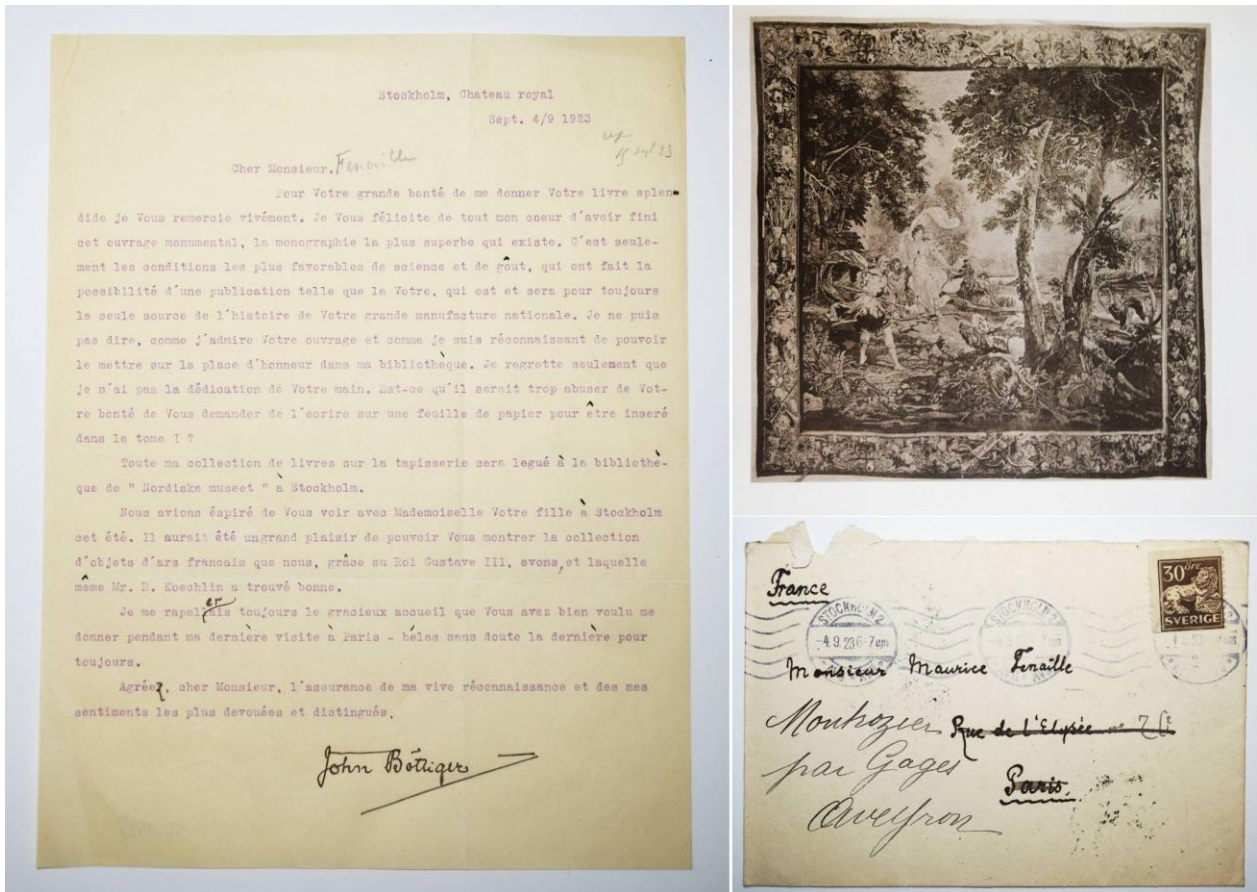 Stockholm, Chateau royal
Sept. 4/9 1923
Cher Monsieur, Fenaille
Pour Votre grande bonté de me donner Votre livre splen-
dide je Vous remercie vivément. Je Vous félicite de tout mon coeur d'avoir fini
cet ouvrage monumental, la monographie la plus superbe qui existe. C'est seule-
ment les conditions les plus favorables de science et de gôut, qui ont fait la
possibilité d'une publication telle que la Votre, qui est et sera pour toujours
le seule source de l'histoire de Votre grande manufacture nationale. Je ne puis
pas dire, comme j'admire Votre ouvrage et comme je suis réconnaissant de pouvoir
le mettre sur la place d'honneur dans ma bibliothèque. Je regrette seulement que
je n'ai pas la dédication de Votre main. Est-ce qu'il serait trop abuser de Vot-
re bonté de Vous demander de l'écrire sur une feuille de papier pour être inseré
dans le tome I ?
Toute ma collection de livres sur la tapisserie sera legué à la bibliothè-
que de " Nordiska museet " à Stockholm.
Nous avions éspiré de Vous voir avec Mademoiselle Votre fille à Stockholm
cet été. Il aurait été ungrand plaisir de pouvoir Vous montrer la collection
d'objets d'ars francais que nous, grâce au Roi Gustave III, avons, et laquelle
même Mr. R. Koechlin a trouvé bonne.
Je me rapellais toujours le gracieux accueil que Vous avez bien voulu me
donner pendant ma dernière visite à Paris - hélas sans doute la dernière pour
toujours.
Agréez, cher Monsieur, l'assurance de ma vive réconnaissance et des mes
sentiments les plus devouées et distingués.
John Böttiger
France
30 öre
SVERIGE
STOCKHOLM 2
-4.9.23 6-7 em
STOCKHOLM 2
Monsieur Maurice Fenaille
Montrozier Rue de l'Elysée
par Gages
Paris
Aveyron